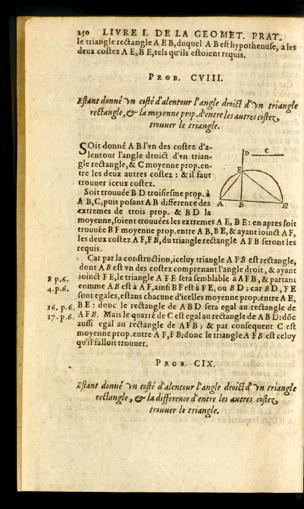 250 LIVRE I. DE LA GEOMET. PRAT.
le triangle rectangle A E B, duquel A B est hypothenuse, a les
deux costez A E, B E, tels qu'ils estoient requis.
PROB. CVIII.
Estant donné vn costé d'alentour l'angle droict d'vn triangle
rectangle, & la moyenne prop. d'entre les autres costez,
trouuer le triangle.
SOit donné A B l'vn des costez d'a-
lentour l'angle droict d'vn trian-
gle rectangle, & C moyenne prop. en-
tre les deux autres costez : & il faut
trouuer iceux costez.
Soit trouuée B D troisiesme prop. à
A B, C, puis posant A B difference des
extremes de trois prop. & B D la
moyenne, soient trouuées les extremes A E, B E : en apres soit
trouuée B F moyenne prop. entre A B, B E, & ayant ioinct A F,
les deux costez A F, F B, du triangle rectangle A F B seront les
requis.
Car par la construction, iceluy triangle A F B est rectangle,
dont A B est vn des costez comprenant l'angle droit, & ayant
8 p.6. ioinct F E, le triangle A F E sera semblable à A F B, & partant
4.p.6. comme A B est à A F, ainsi B F est à F E, ou B D ; car B D, F E
sont egales, estans chacune d'icelles moyenne prop. entre A E,
16. p.6. B E : donc le rectangle de A B D sera egal au rectangle de
17. p.6. A F B. Mais le quarré de C est egal au rectangle de A B D: dōc
aussi egal au rectangle de A F B ; & par consequent C est
moyenne prop. entre A F, F B; donc le triangle A F B est celuy
qu'il falloit trouuer.
PROB. CIX.
Estant donné vn costé d'alentour l'angle droict d'vn triangle
rectangle, & la difference d'entre les autres costez,
trouuer le triangle.
D C
F
A B E